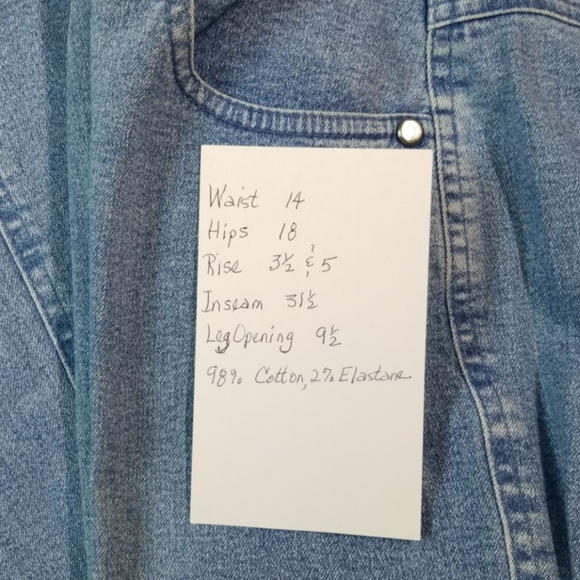 Waist 14
Hips 18
Rise 3½ & 5
Inseam 31½
Leg Opening 9½
98% Cotton, 2% Elastane